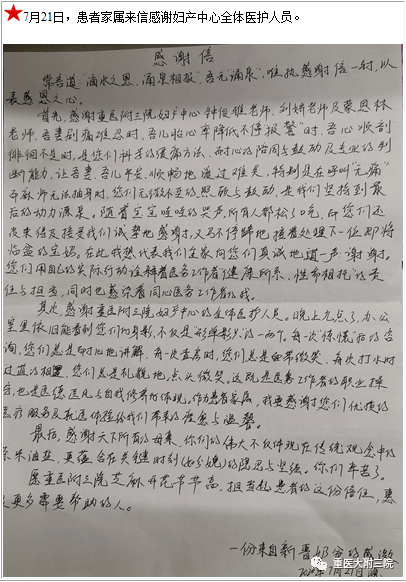 7月21日，患者家属来信感谢妇产中心全体医护人员。
感谢信
常言道“滴水之恩，涌泉相报”，吾无“涌泉”，唯执感谢信一封，以
表感恩之心。
首先，感谢重医附三院妇产中心钟俊雅老师、刘娇老师及蔡恩林
老师。吾妻剧痛难忍时，吾儿胎心率降低不停报警时，吾心烦到
徘徊不是时，是您们科学的缓痛方法、耐心的陪同与鼓动及专业的判
断能力，让吾妻、吾儿平安、顺畅地渡过难关。特别是在呼叫“无痛”
麻师无法抽身时，您们无微不至的照顾与鼓动，是我们坚持到最
后的动力源泉。随着宝宝哇哇的哭声，所有人都松了口气，而您们还
没来得及接受我们诚挚地感谢，又马不停蹄地接着处理下一位即将
临盆的宝妈。在此，我想代表我们全家向您们真诚地道一声：谢谢。
您们用自己的实际行动诠释着医务工作者“健康所系、性命相托”的责
任与担当，同时也感染着同心医务工作者的我。
其次，感谢重医附三院妇产中心的全体医护人员。晚上九点了，办公
室里依旧能看到您们的身影，不仅是“形单影只”的一两个。每一次“惊慌”后的咨
询，您们总是耐心地讲解，每一次查房时，您们总是面带微笑，每次打水时
过道的相遇，您们总是礼貌地，点头微笑。这既是医务工作者的职业操
守，也是医德医风与自我修养的体现。作为患者家属，我要感谢您们优质的
医疗服务及就医体验给我们带来的痊愈与温馨。
最后，感谢天下所有的母亲，你们的伟大不仅体现在传统观念中的
柴米油盐，更蕴含在关键时刻（如分娩）的隐忍与坚强。你们辛苦了。
愿重医附三院芝麻开花节节高，担当起患者的这份信任，惠
及更多需要帮助的人。
一份来自新晋奶爸的感激
2020年7月21日
重医大附三院